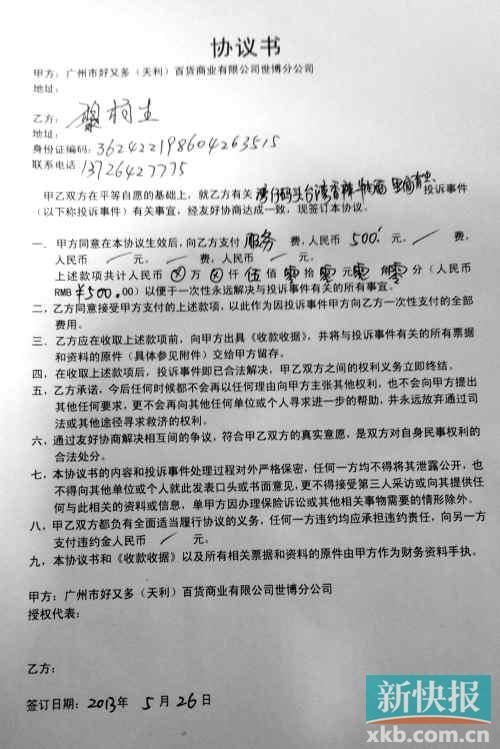 协议书
甲方：广州市好又多（天利）百货商业有限公司世博分公司
地址：
乙方：
地址：
身份证编码：362422198604263515
联系电话：13726427775
甲乙双方在平等自愿的基础上，就乙方有关 投诉事件
（以下称投诉事件）有关事宜，经友好协商达成一致，现签订本协议。
一．甲方同意在本协议生效后，向乙方支付 服务 费，人民币 500 元，／ 费，
人民币 ／ 元。／ 费，人民币 ／ 元。
上述款项共计人民币 ⊗ 万 ⊗ 仟 伍 佰 零 拾 零 元 零 角 零 分（人民币
RMB ¥500.00）以便于一次性永远解决与投诉事件有关的所有事宜。
二．乙方同意接受甲方支付的上述款项，以此作为因投诉事件甲方向乙方一次性支付的全部
费用。
三．乙方应在收取上述款项前，向甲方出具《收款收据》，并将与投诉事件有关的所有票据
和资料的原件（具体参见附件）交给甲方留存。
四．在收取上述款项后，投诉事件即已合法解决，甲乙双方之间的权利义务立即终结。
五．乙方承诺，今后任何时候都不会再以任何理由向甲方主张其他权利，也不会向甲方提出
其他任何要求，更不会再向其他任何单位或个人寻求进一步的帮助，并永远放弃通过司
法或其他途径寻求救济的权利。
六．通过友好协商解决相互间的争议，符合甲乙双方的真实意愿，是双方对自身民事权利的
合法处分。
七．本协议书的内容和投诉事件处理过程对外严格保密，任何一方均不得将其泄露公开，也
不得向其他单位或个人就此发表口头或书面意见，更不得接受第三人采访或向其提供任
何与此相关的资料或信息，单方因办理保险诉讼或其他相关事物需要的情形除外。
八．甲乙双方都负有全面适当履行协议的义务，任何一方违约均应承担违约责任，向另一方
支付违约金人民币 ／ 元。
九．本协议书和《收款收据》以及所有相关票据和资料的原件由甲方作为财务资料手执。
甲方：广州市好又多（天利）百货商业有限公司世博分公司
授权代表：
乙方：
签订日期：2013年 5 月 26 日
新快报
xkb.com.cn